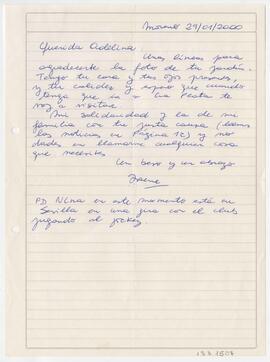 Moreno 29/01/2000
Querida Adelina:
Unas líneas para
agradecerte la foto de tu jardín.
Tengo tu cara y tus ojos presentes,
y tu calidez y espero que cuando
tenga que ir a La Plata te
voy a visitar.
Mi solidaridad y la de mi
familia con tu justa causa (leemos
las noticias en Página 12) y no
dudes en llamarme cualquier cosa
que necesites.
Un beso y un abrazo
Irene
PD Nina en este momento está en
Sevilla en una gira con el club
jugando al jockey